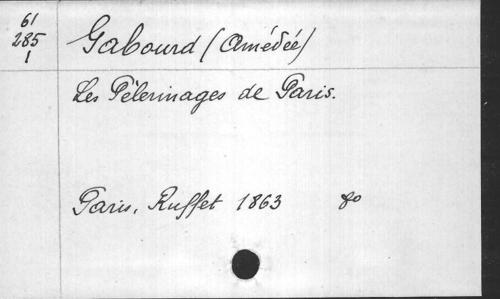 61
285
1
Gabourd (Amédée)
Les Pèlerinages de Paris.
Paris, Ruffet 1863 8o